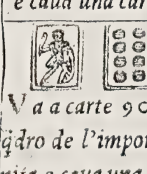 e caua una car
Va a carte 90
q̃dro de l'impor